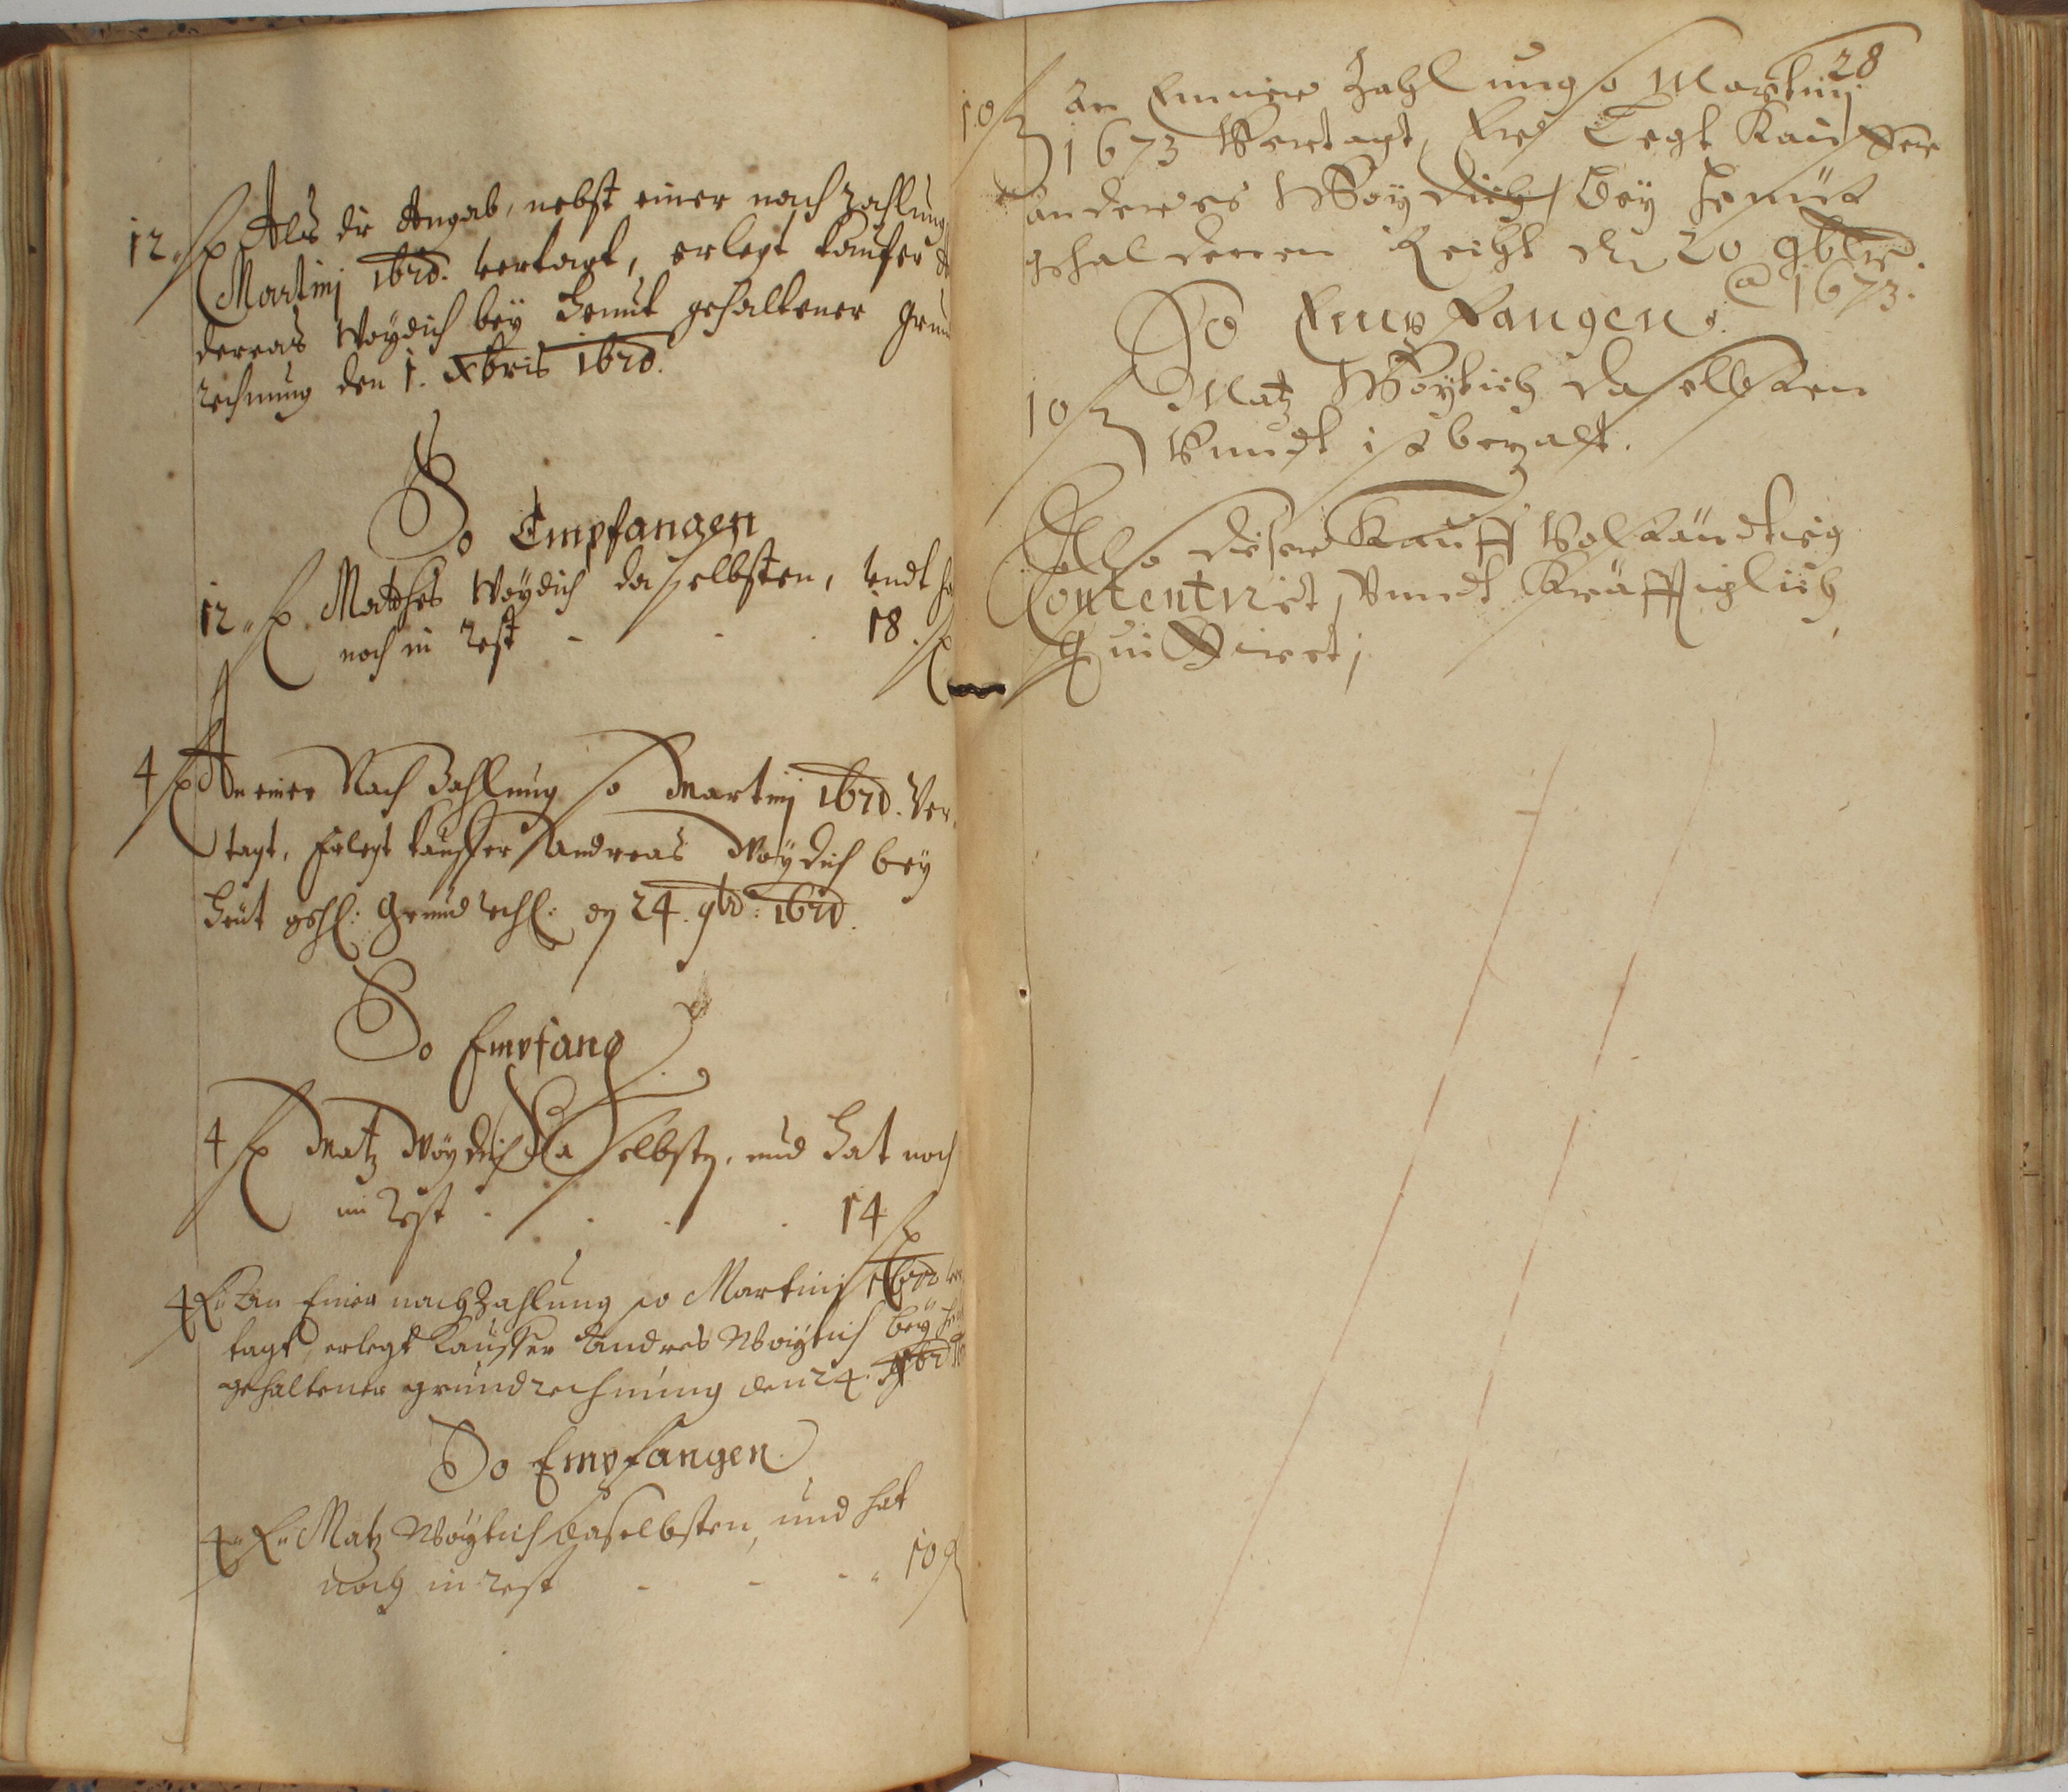 12 „ ß Als die Angab, nebst einer nachzahlung
Martinj 1670. vertagt, erlegt Kaufer
dereas Woydich bey heunt gehaltener Grun
rechnung den 1. Xbris 1670.
So Empfangen
12 „ ß Mathes Woydich daselbsten, undt
noch in rest - - - 18 ß
4 ß An einer Nach Zahlung so Martinj 1671. Ver
tagt, Erlegt Kauffer Andreas Woydich bey
heut gehl: Grund rech: dn 24. 9br: 1671.
So Empfang
4 ß Matz Woydich Daselbsten, und hat noch
im rest - - - 14 ß
4 ß „ An Einer nachZahlung so Martinj
tagt erlegt Kauffer Andres Woytich bey
gehaltener grundrechnung den 24. 9br
So Empfangen
4 „ ß „ Matz Woytich daselbsten, und hat
noch in rest - - - „ 10 ß
28
10 ß an Einner Zahlung so Martinj
1673 Vertagt, Erlegt Kauffer
anderes Woydich bey heunt
gehaldenen Reiht dn 20 9bris.
a 1673.
So Empfangen.
10 ß Matz Woytich daselbsten
Vundt ist bezalt.
Also dieser Kauff Volständtig
Contentriet, Vundt Kräfftiglich
Quittiret,